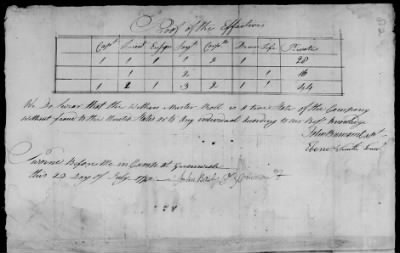 Proof of the Effectives
Capt Lieut Ensgn Sergt Corpl Drum Fife Privates
1 1 1 1 2 1 28
1 2 1 16
1 2 1 3 2 1 1 44
We do Swear that the Within Muster Roll is a true State of the Company
without fraud to the United States or to Any individual According to our Best Knowledge
John Capt
Eben Smith Lieut
Sworne Before Me in Camp at Greenwich
this 23 Day of July